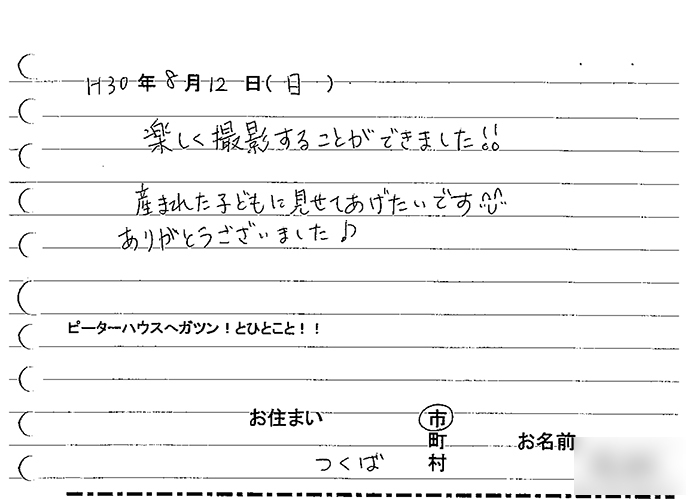 H30年8月12日(日)
楽しく撮影することができました!!
産まれた子どもに見せてあげたいです^^
ありがとうございました♪
ピーターハウスへガツン!とひとこと!!
お住まい 市
町 お名前
つくば 村